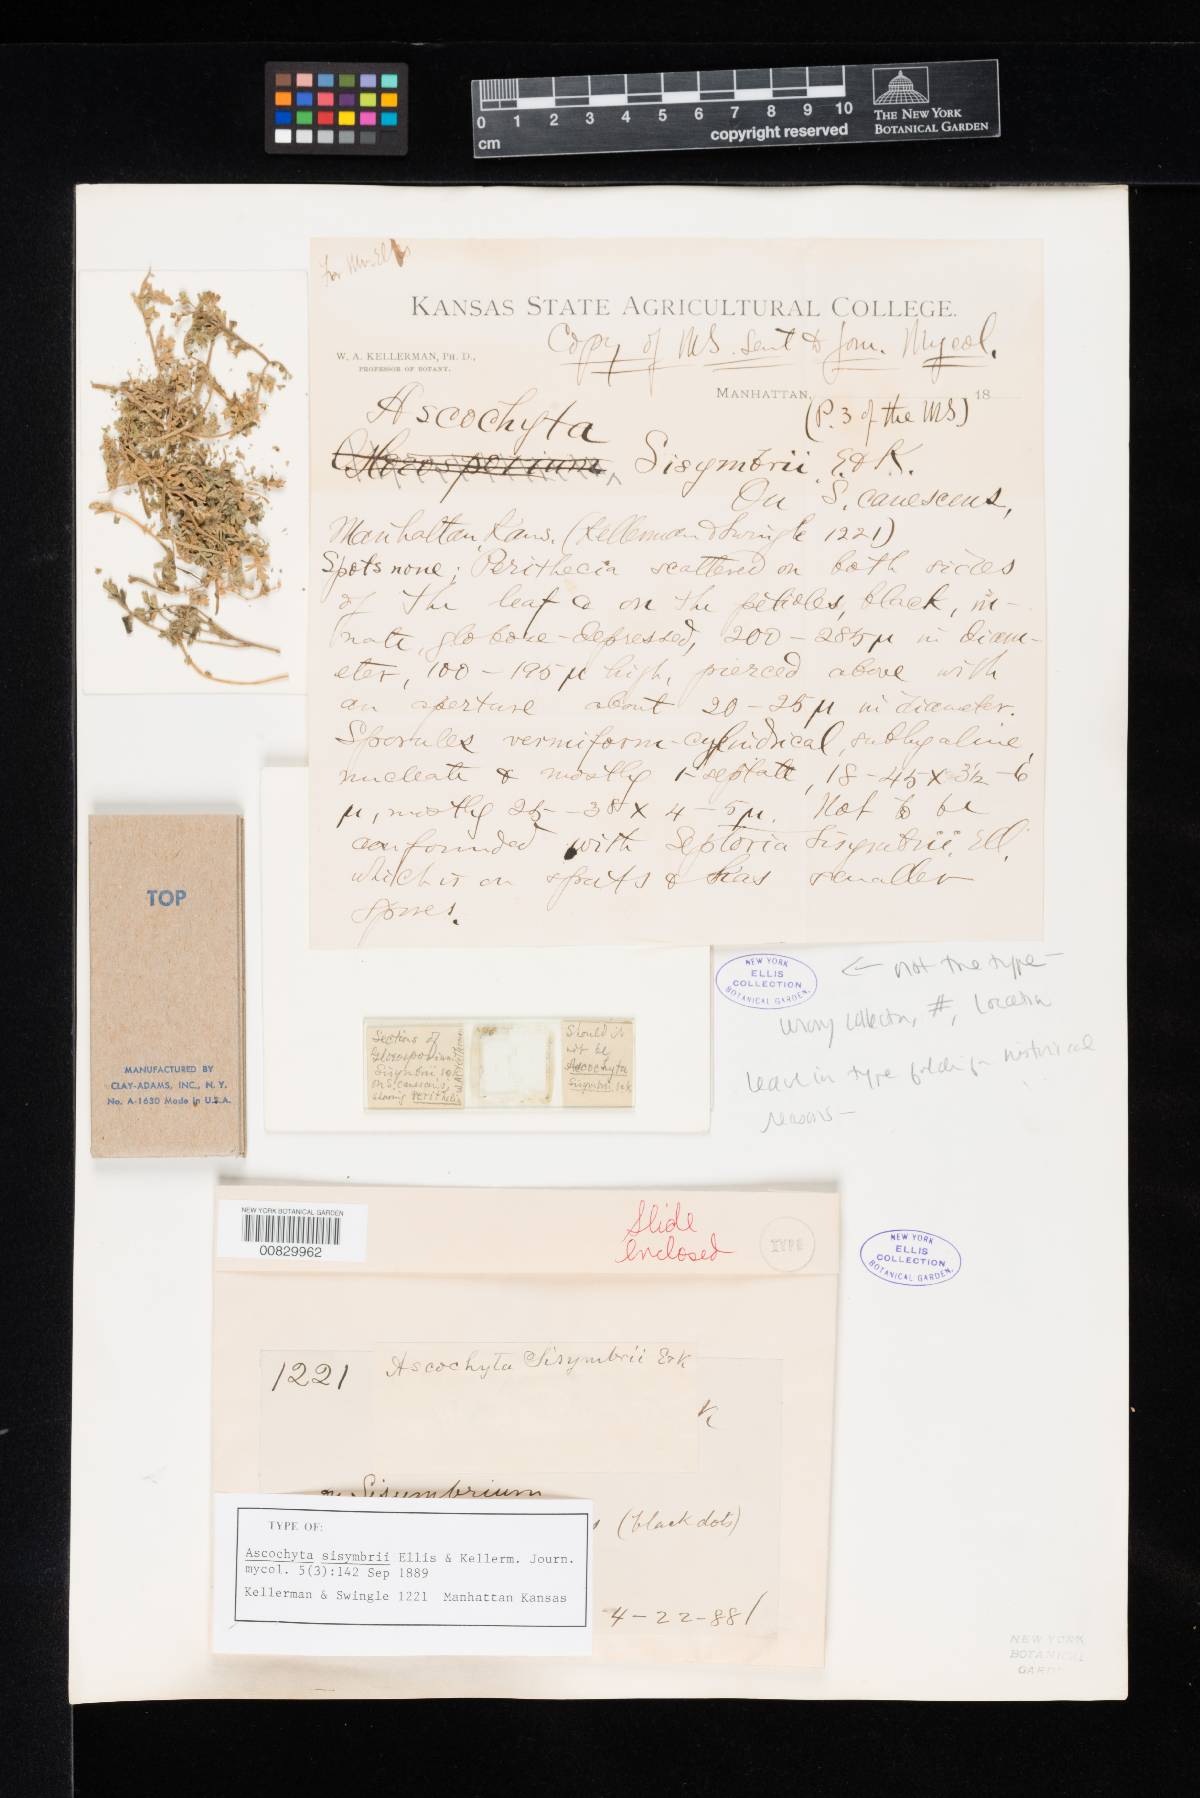 0 1 2 3 4 5 6 7 8 9 10
cm
copyright reserved
THE NEW YORK
BOTANICAL GARDEN
For Mr. Ellis
KANSAS STATE AGRICULTURAL COLLEGE.
Copy of MS. sent to Jour. Mycol.
W. A. KELLERMAN, PH. D.,
PROFESSOR OF BOTANY.
MANHATTAN, 18
(P. 3 of the MS)
Ascochyta
Sisymbrii E. & K.
On S. canescens,
Manhattan, Kans. (Kellerman & Swingle 1221)
Spots none; Perithecia scattered on both sides
of the leaf & on the petioles, black, in-
nate, globose-depressed, 200-285µ in diam-
eter, 100-195µ high, pierced above with
an aperture about 20-25µ in diameter.
Sporules vermiform-cylindrical, subhyaline,
nucleate & mostly 1-septate, 18-45 x 3½-6
µ, mostly 25-38 x 4-5µ. Not to be
confounded with Septoria Sisymbrii, Ell.
which is on spots & has smaller
spores.
TOP
MANUFACTURED BY
CLAY-ADAMS, INC., N. Y.
No. A-1630 Made in U.S.A.
NEW YORK
ELLIS
COLLECTION
BOTANICAL GARDEN.
← not the type—
wrong collector, #, location
leave in type folder for historical
reasons—
Sections of
Sisymbrii
on S. canescens,
showing Perithecia
Should it
not be
Ascochyta
Sisymbrii E&K
NEW YORK BOTANICAL GARDEN
00829962
Slide
enclosed
TYPE
NEW YORK
ELLIS
COLLECTION
BOTANICAL GARDEN.
1221
Ascochyta Sisymbrii E&K
K
on Sisymbrium
(black dots)
TYPE OF:
Ascochyta sisymbrii Ellis & Kellerm. Journ.
mycol. 5(3):142 Sep 1889
Kellerman & Swingle 1221 Manhattan Kansas
4-22-88
NEW YORK
BOTANICAL
GARDEN